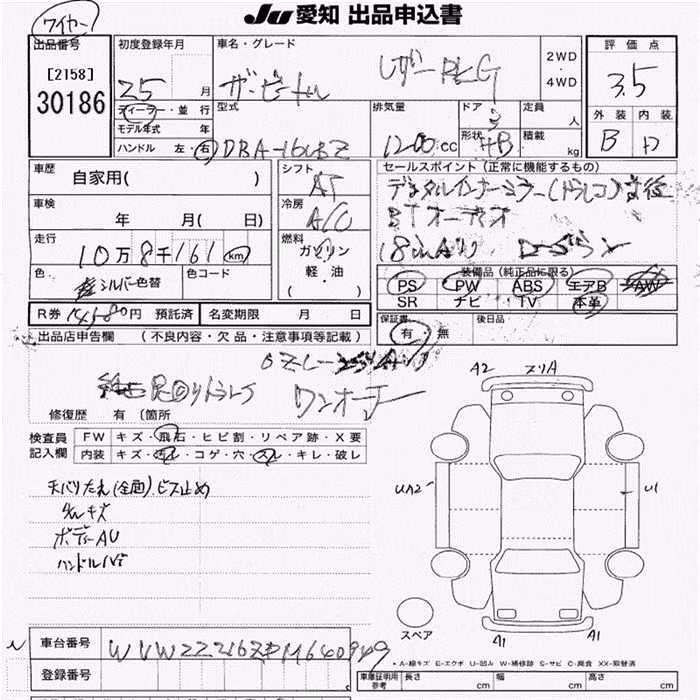 ワイヤー
JU 愛知 出品申込書
出品番号
[2158]
30186
初度登録年月
25 月
ディーラー・並行
モデル年式 年
ハンドル 左・右
車名・グレード
ザ・ビートル
レザーPKG
2WD
4WD
型式
DBA-16CBZ
排気量
1200cc
ドア
3
形状
HB
定員
人
積載
kg
評価点
3.5
外装 内装
B D
車歴
自家用( )
車検
年 月( 日)
走行
10万8千161km
色
シルバー色替
色コード
シフト
AT
冷房
A/C
燃料
ガソリン
軽・油
( )
セールスポイント(正常に機能するもの)
デジタルインナーミラー(ドラレコ)前後
BTオーディオ
18inAW
装備品(純正品に限る)
PS PW ABS エアB AW
SR ナビ TV 本革
R券 14,580円 預託済
名変期限 月 日
保証書
有・無
後日品
出品店申告欄 (不良内容・欠品・注意事項等記載)
ワンオーナー
修復歴 有 (箇所
検査員
記入欄
FW キズ・飛石・ヒビ割・リペア跡・X要
内装 キズ・汚レ・コゲ・穴・スレ・キレ・破レ
天バリたれ(全面).ビス止め
ボディーAU
A2 スリA
UA2
U1
スペア
A1 A1
車台番号 WVWZZZ16ZDM640949
登録番号
・A-線キズ E-エクボ U-凹ム W-補修跡 S-サビ C-腐食 XX-交替済
車庫証明用
参考
長さ cm 幅 cm 高さ cm